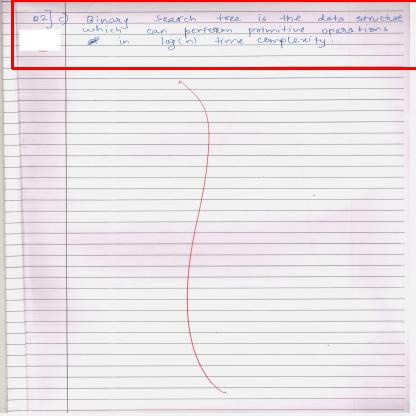 02] c) Binary Search tree is the data structure
which can perform primitive operations
in log(n) time complexity.